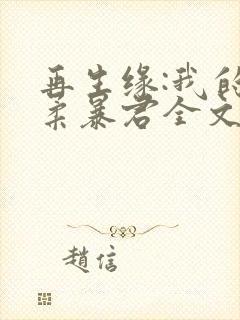 再生缘:我的
柔暴君全文
趙信